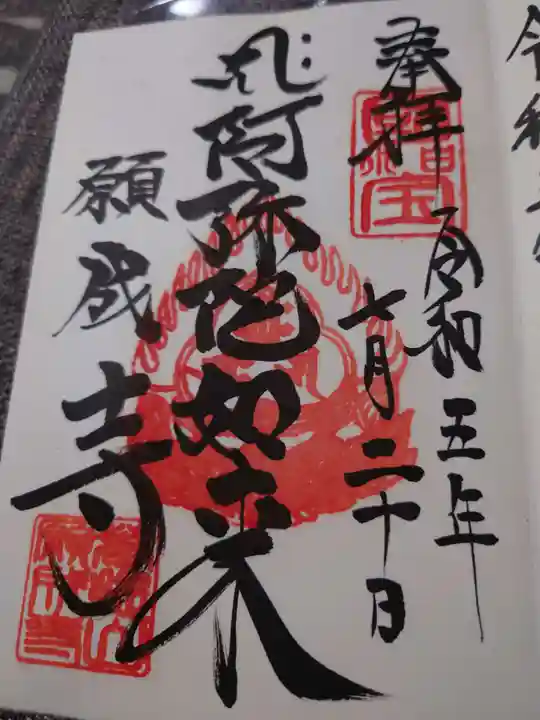 奉拝
令和五年
七月二十日
阿弥陀如来
願成寺